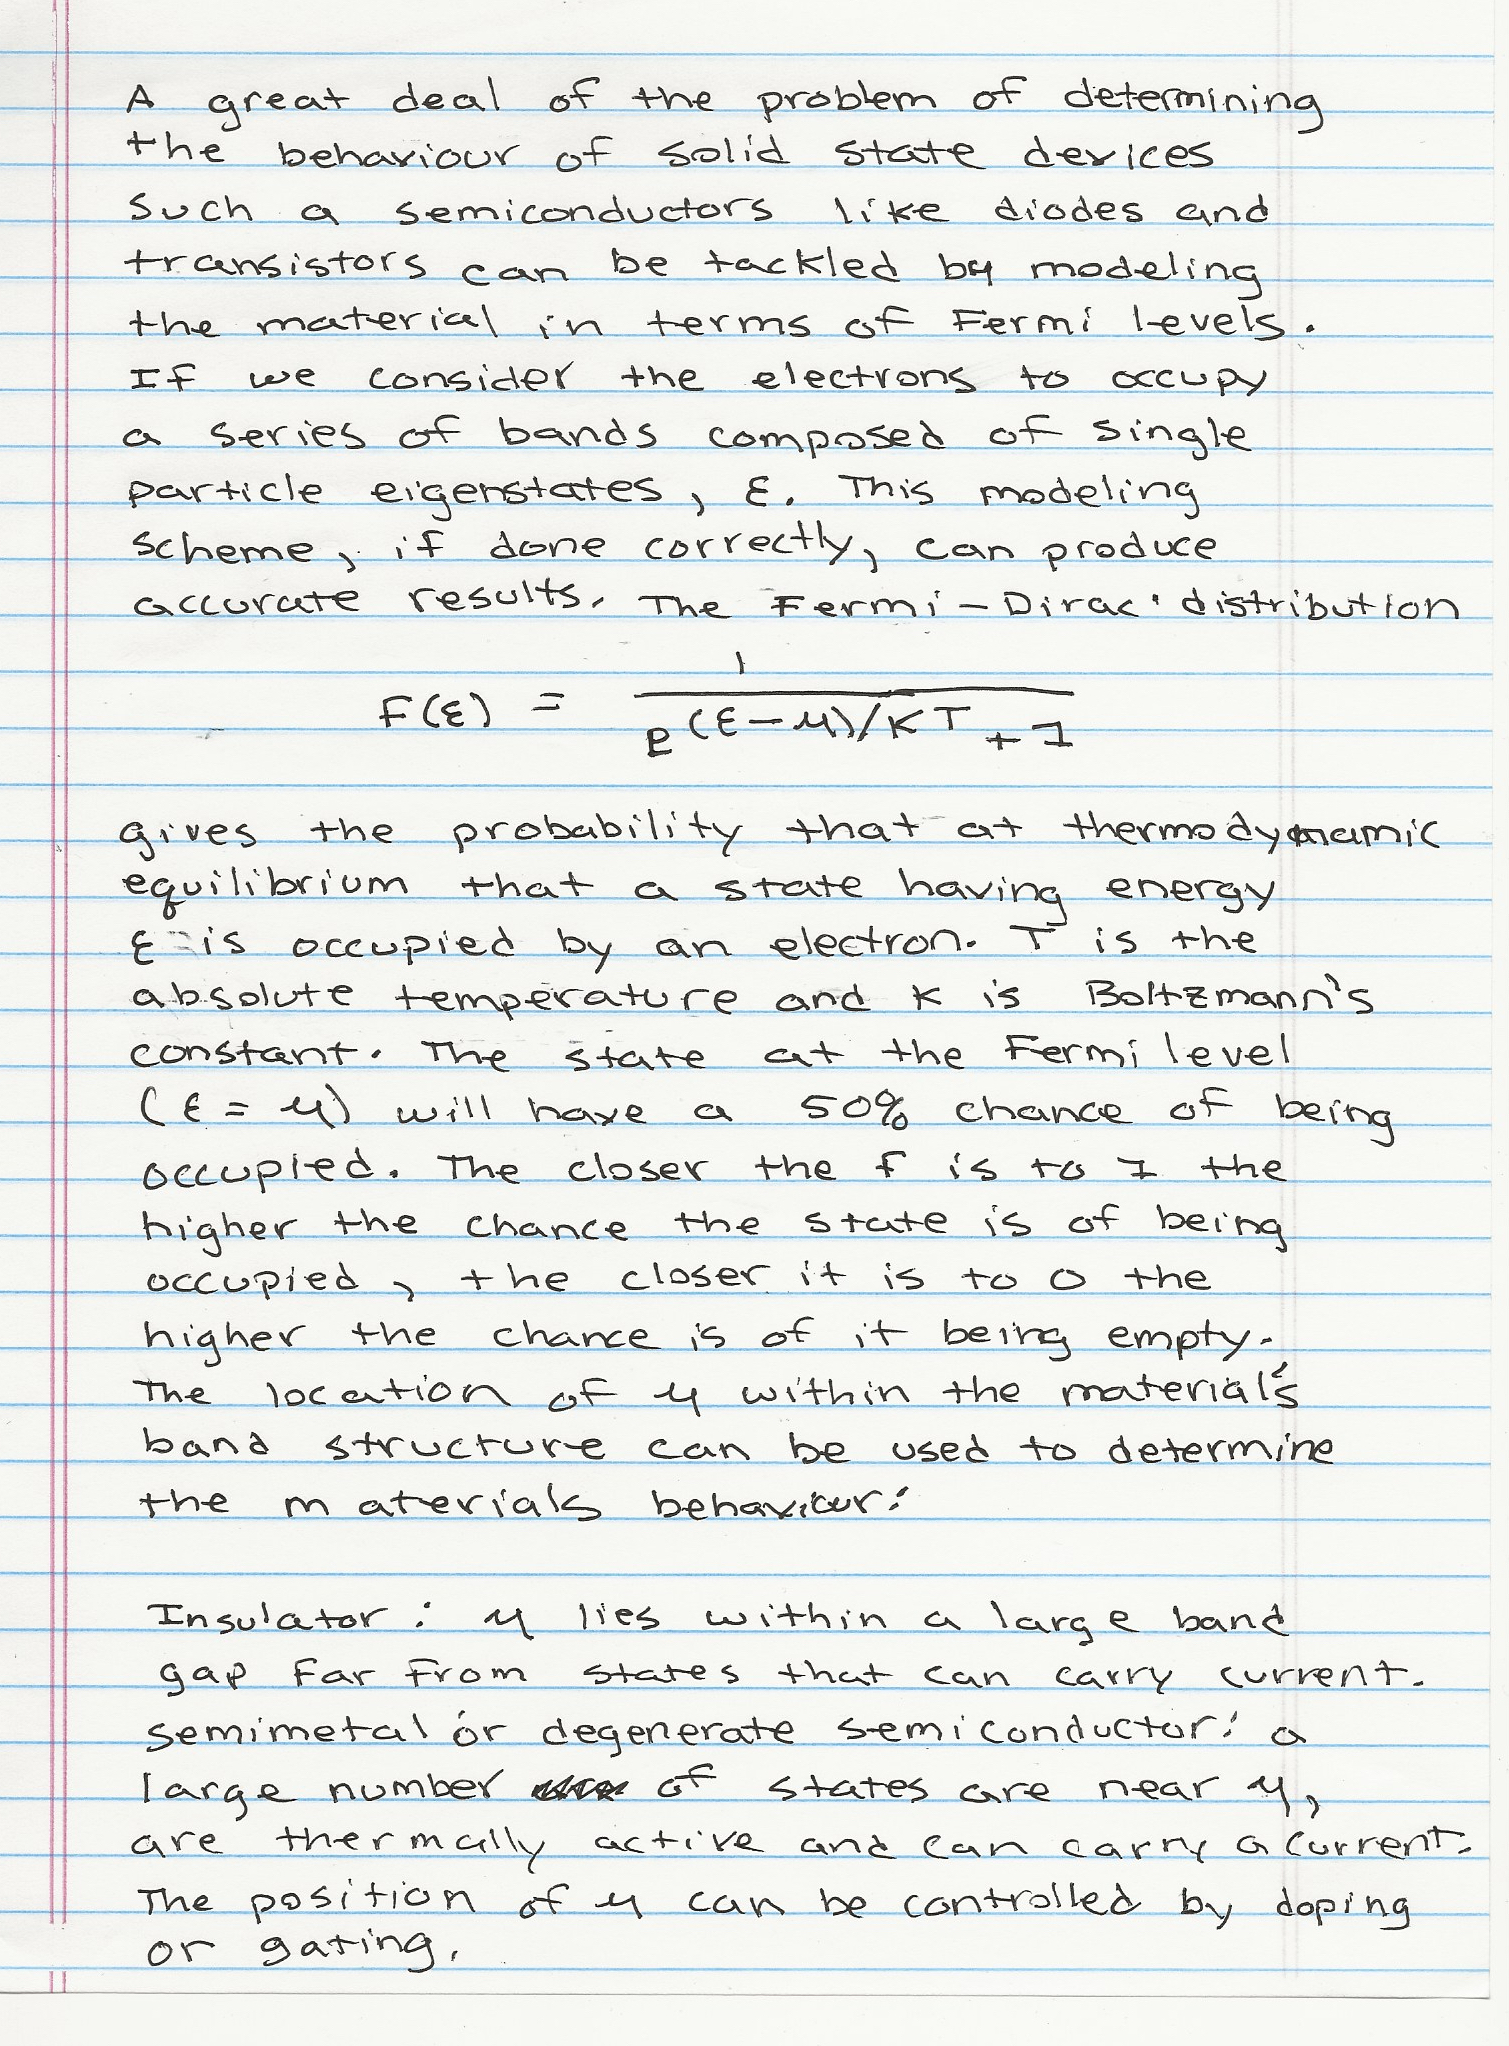 A great deal of the problem of determining
the behaviour of solid state devices
such a semiconductors like diodes and
transistors can be tackled by modeling
the material in terms of Fermi levels.
If we consider the electrons to occupy
a series of bands composed of single
particle eigenstates, ε. This modeling
scheme, if done correctly, can produce
accurate results. The Fermi-Dirac distribution
F(ε) = 1 / e^(ε-μ)/KT + 1
gives the probability that at thermodynamic
equilibrium that a state having energy
ε is occupied by an electron. T is the
absolute temperature and K is Boltzmann's
constant. The state at the Fermi level
(ε = μ) will have a 50% chance of being
occupied. The closer the f is to 1 the
higher the chance the state is of being
occupied, the closer it is to 0 the
higher the chance is of it being empty.
The location of μ within the material's
band structure can be used to determine
the materials behaviour:
Insulator: μ lies within a large band
gap far from states that can carry current.
Semimetal or degenerate semiconductor: a
large number of states are near μ,
are thermally active and can carry a current.
The position of μ can be controlled by doping
or gating.